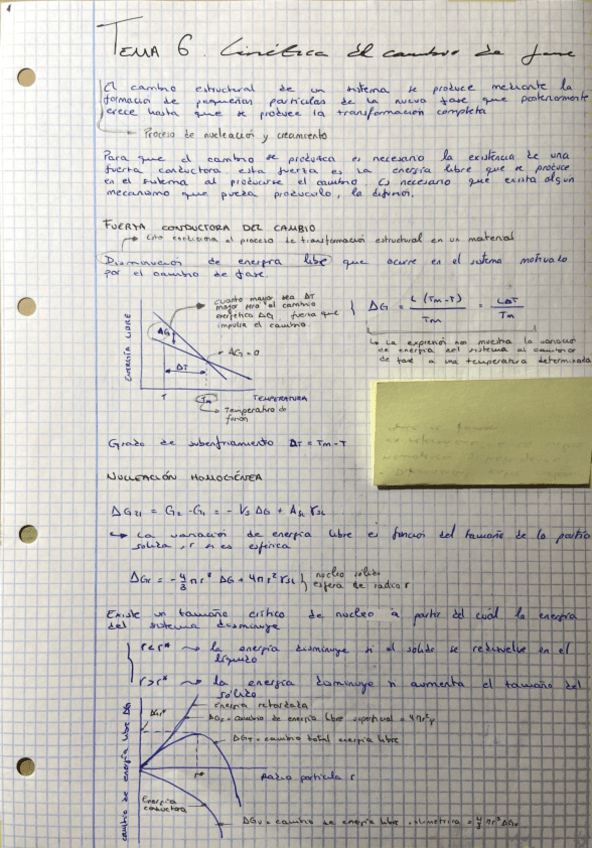 1
TEMA 6. Cinética del cambio de fase
El cambio estructural de un sistema se produce mediante la
formación de pequeñas partículas de la nueva fase que posteriormente
crece hasta que se produce la transformación completa
Proceso de nucleación y crecimiento
Para que el cambio se produzca es necesario la existencia de una
fuerza conductora, esta fuerza es la energía libre que se produce
en el sistema al producirse el cambio. Es necesario que exista algún
mecanismo que pueda producirlo, la difusión.
FUERZA CONDUCTORA DEL CAMBIO
el proceso de transformación estructural en un material
Disminución de energía libre que ocurre en el sistema motivado
por el cambio de fase.
ENERGÍA LIBRE
ΔG
cuanto mayor sea ΔT
mayor será el cambio
energético ΔG, fuerza que
impulsa el cambio
ΔG=0
ΔT
T
Tm
TEMPERATURA
Temperatura de
fusión
ΔG = L (Tm-T) / Tm = LΔT / Tm
La expresión nos muestra la variación
de energía del sistema al cambiar
de fase a una temperatura determinada
Grado de subenfriamiento ΔT = Tm-T
NUCLEACIÓN HOMOGÉNEA
ΔG21 = G2 - G1 = - Vs ΔG + Asl γsl
La variación de energía libre es función del tamaño de la partíc
solida, r si es esférica
ΔGr = - 4/3 πr³ ΔG + 4πr² γsl } nucleo sólido
esfera de radio r
Existe un tamaño crítico de nucleo a partir del cuál la energía
del sistema disminuye
r<r* la energía disminuye si el solido se redisuelve en el
líquido
r>r* la energía disminuye si aumenta el tamaño del
sólido
cambio de energía libre ΔG
ΔGr*
Energía retardada
ΔGs = cambio de energía libre superficial = 4πr²γ
ΔGT = cambio total energía libre
r*
Radio partícula r
Energía
conductora
ΔGv = cambio de energía libre volumétrica = 4/3 πr³ ΔGv